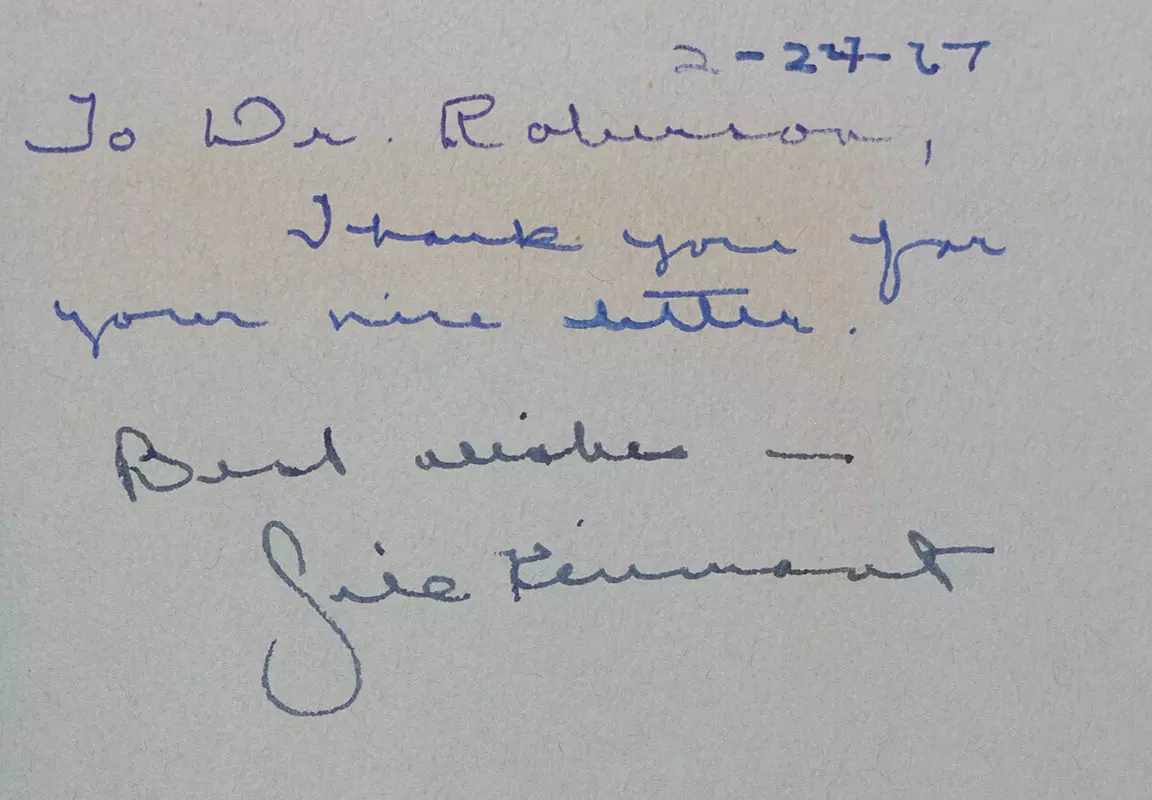 2-24-67
To Dr. Roberson,
Thank you for
your nice letter.
Best wishes —
Jill Kinmont